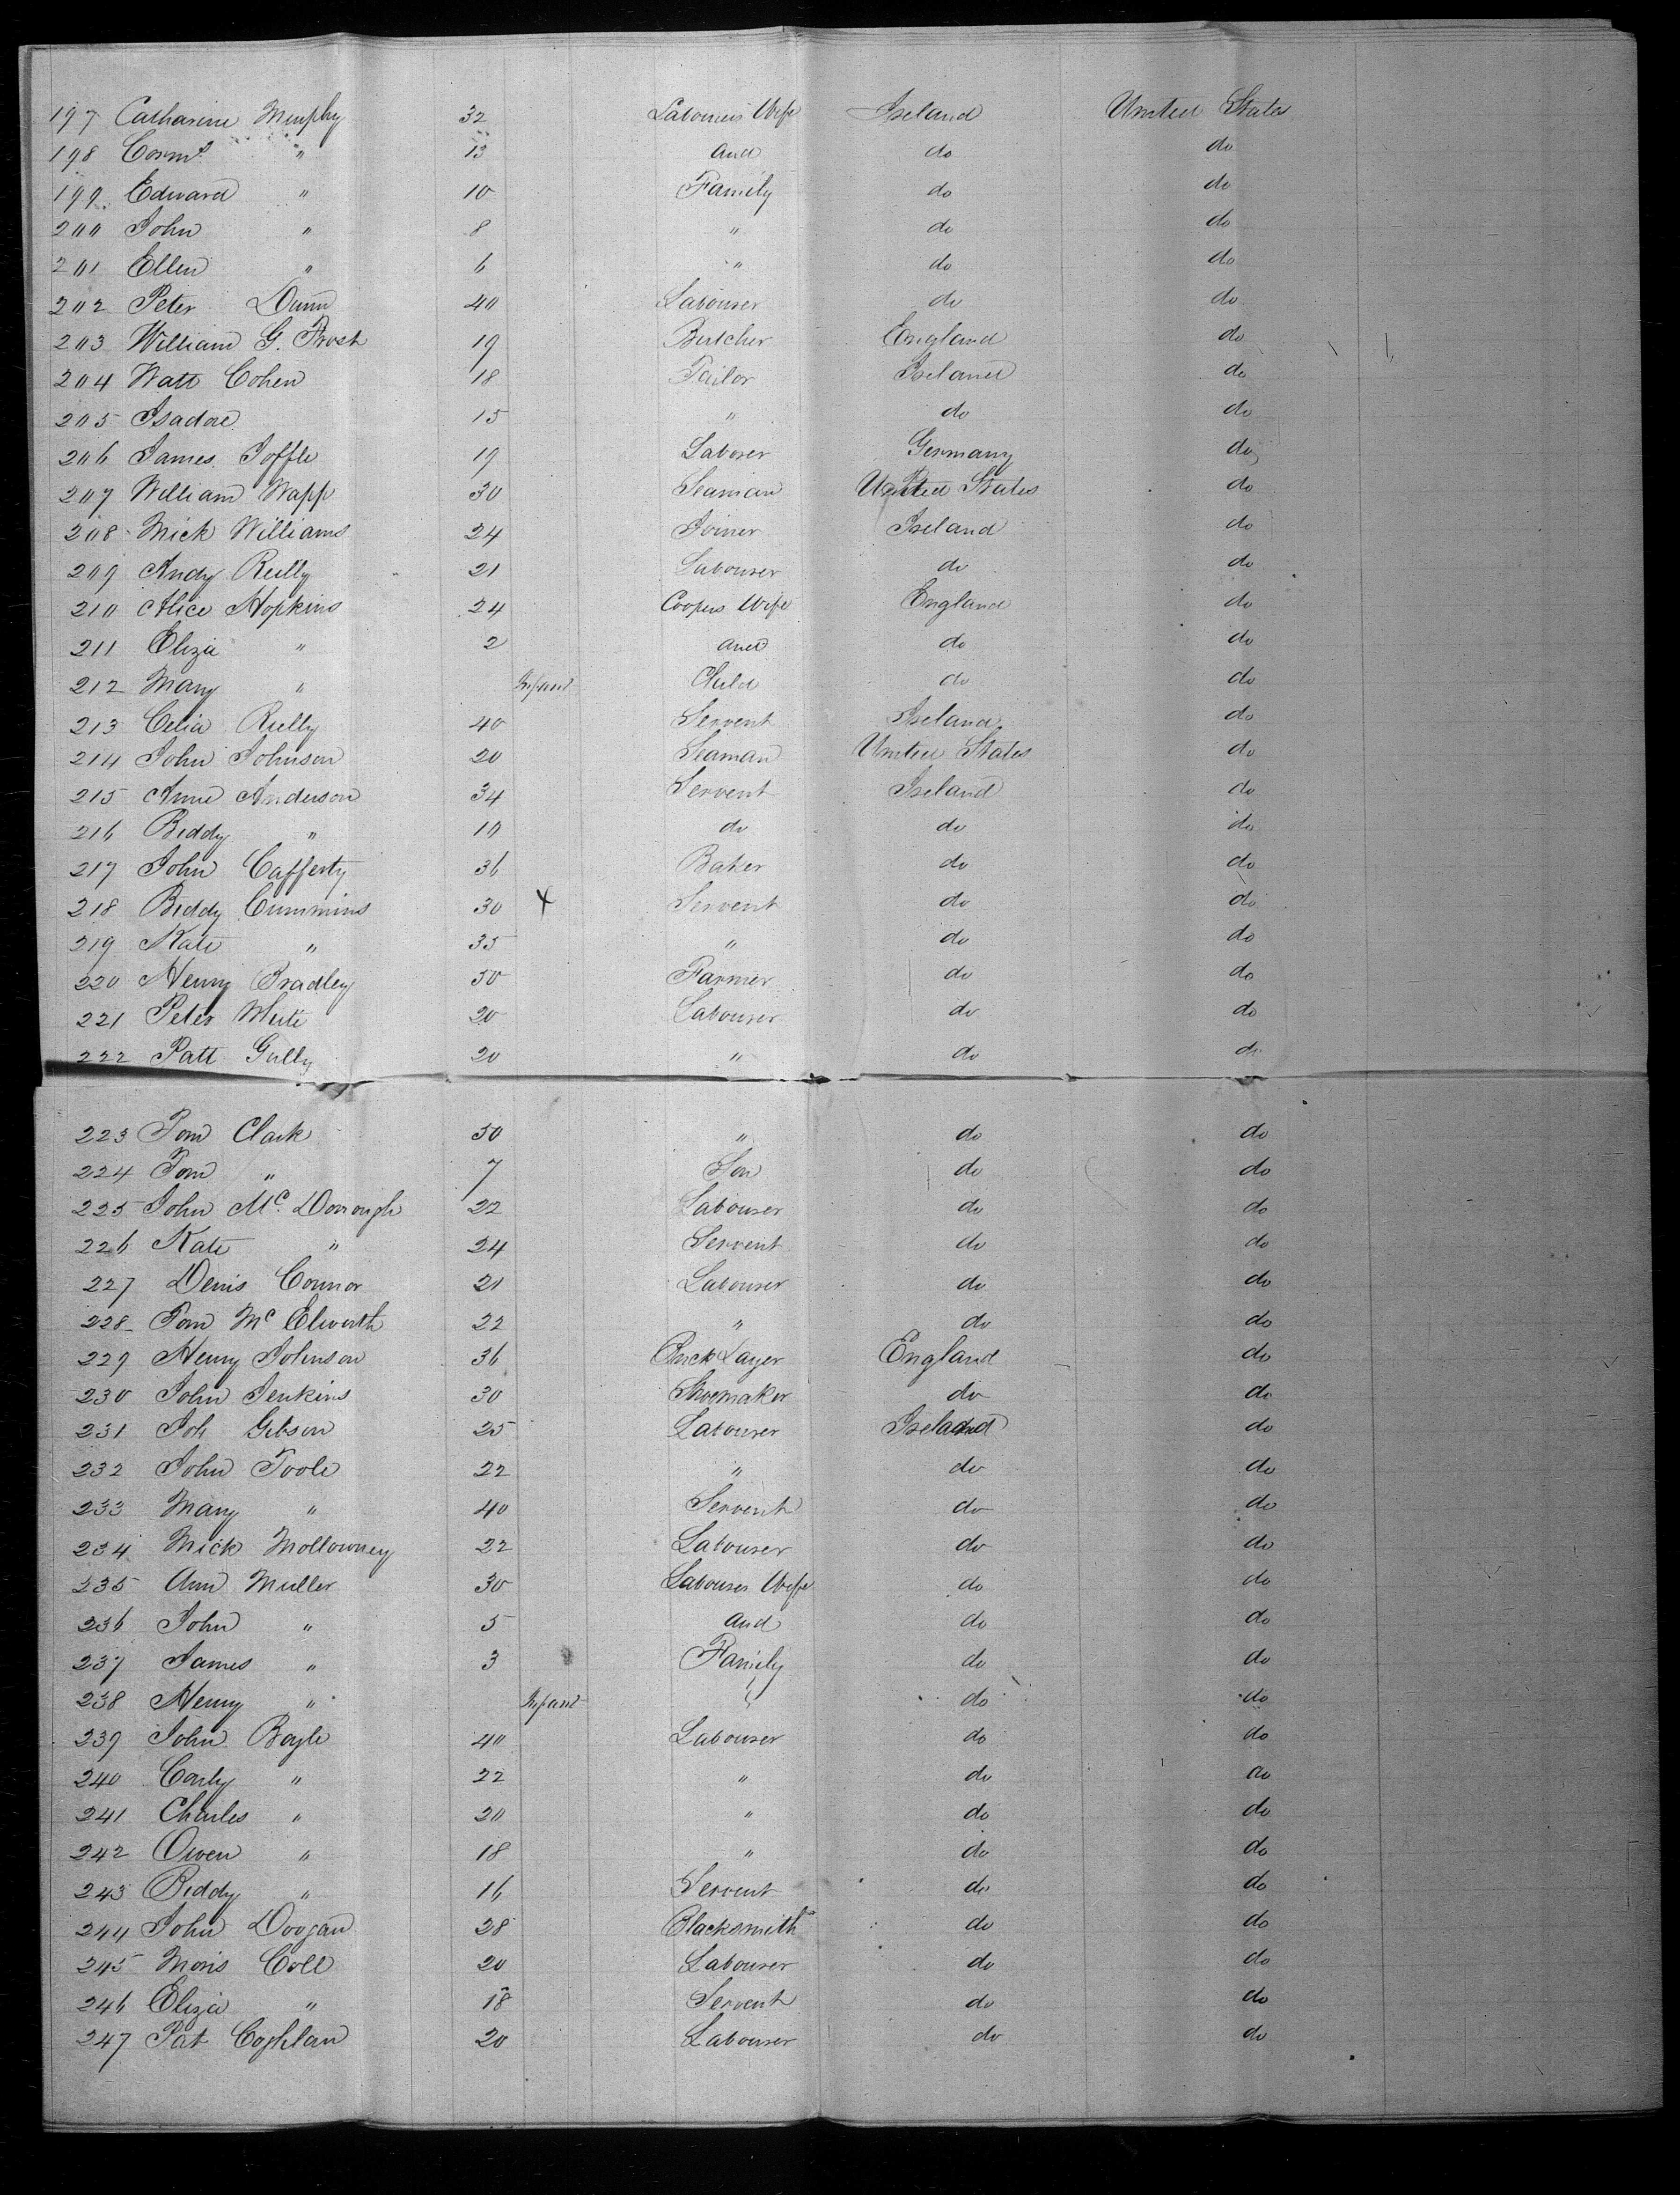 197 Catharine Murphy 32 Labourers Wife Ireland United States
198 " 13 and do do
199 Edward " 10 Family do do
200 John " 8 " do do
201 Ellen " 6 " do do
202 Peter Dunn 40 Labourer do do
203 William G. Frost 19 Butcher England do
204 Watt Cohen 18 Tailor Ireland do
205 Isadore 15 " do do
206 James Joffle 19 Laborer Germany do
207 William Wapp 30 Seaman United States do
208 Mick Williams 24 Joiner Ireland do
209 Andy Reilly 21 Labourer do do
210 Alice Hopkins 24 Coopers Wife England do
211 Eliza " 2 and do do
212 Mary " Infant Child do do
213 Celia Reilly 40 Servent Ireland do
214 John Johnson 20 Seaman United States do
215 Anne Anderson 34 Servent Ireland do
216 Biddy " 10 do do do
217 John Cafferty 36 Baker do do
218 Biddy Cummins 30 X Servent do do
219 Kate " 35 " do do
220 Henry Bradley 50 Farmer do do
221 Peter White 20 Labourer do do
222 Patt Gully 20 " do do
223 Tom Clark 50 " do do
224 Tom " 7 Son do do
225 John Mc Donough 22 Labourer do do
226 Kate " 24 Servent do do
227 Denis Connor 21 Labourer do do
228 Tom Mc Elworth 22 " do do
229 Henry Johnson 36 Brick Layer England do
230 John Jenkins 30 Shoemaker do do
231 Joh Gibson 25 Labourer Ireland do
232 John Toole 22 " do do
233 Mary " 40 Servent do do
234 Mick Mollowney 22 Labourer do do
235 Ann Muller 30 Labourer Wife do do
236 John " 5 and do do
237 James " 3 Family do do
238 Henry " Infant " do do
239 John Boyle 40 Labourer do do
240 " 22 " do do
241 Charles " 20 " do do
242 Owen " 18 " do do
243 Biddy " 16 Servent do do
244 John Doogan 28 Blacksmith do do
245 Moris Coll 20 Labourer do do
246 Eliza " 18 Servent do do
247 Pat Coghlan 20 Labourer do do